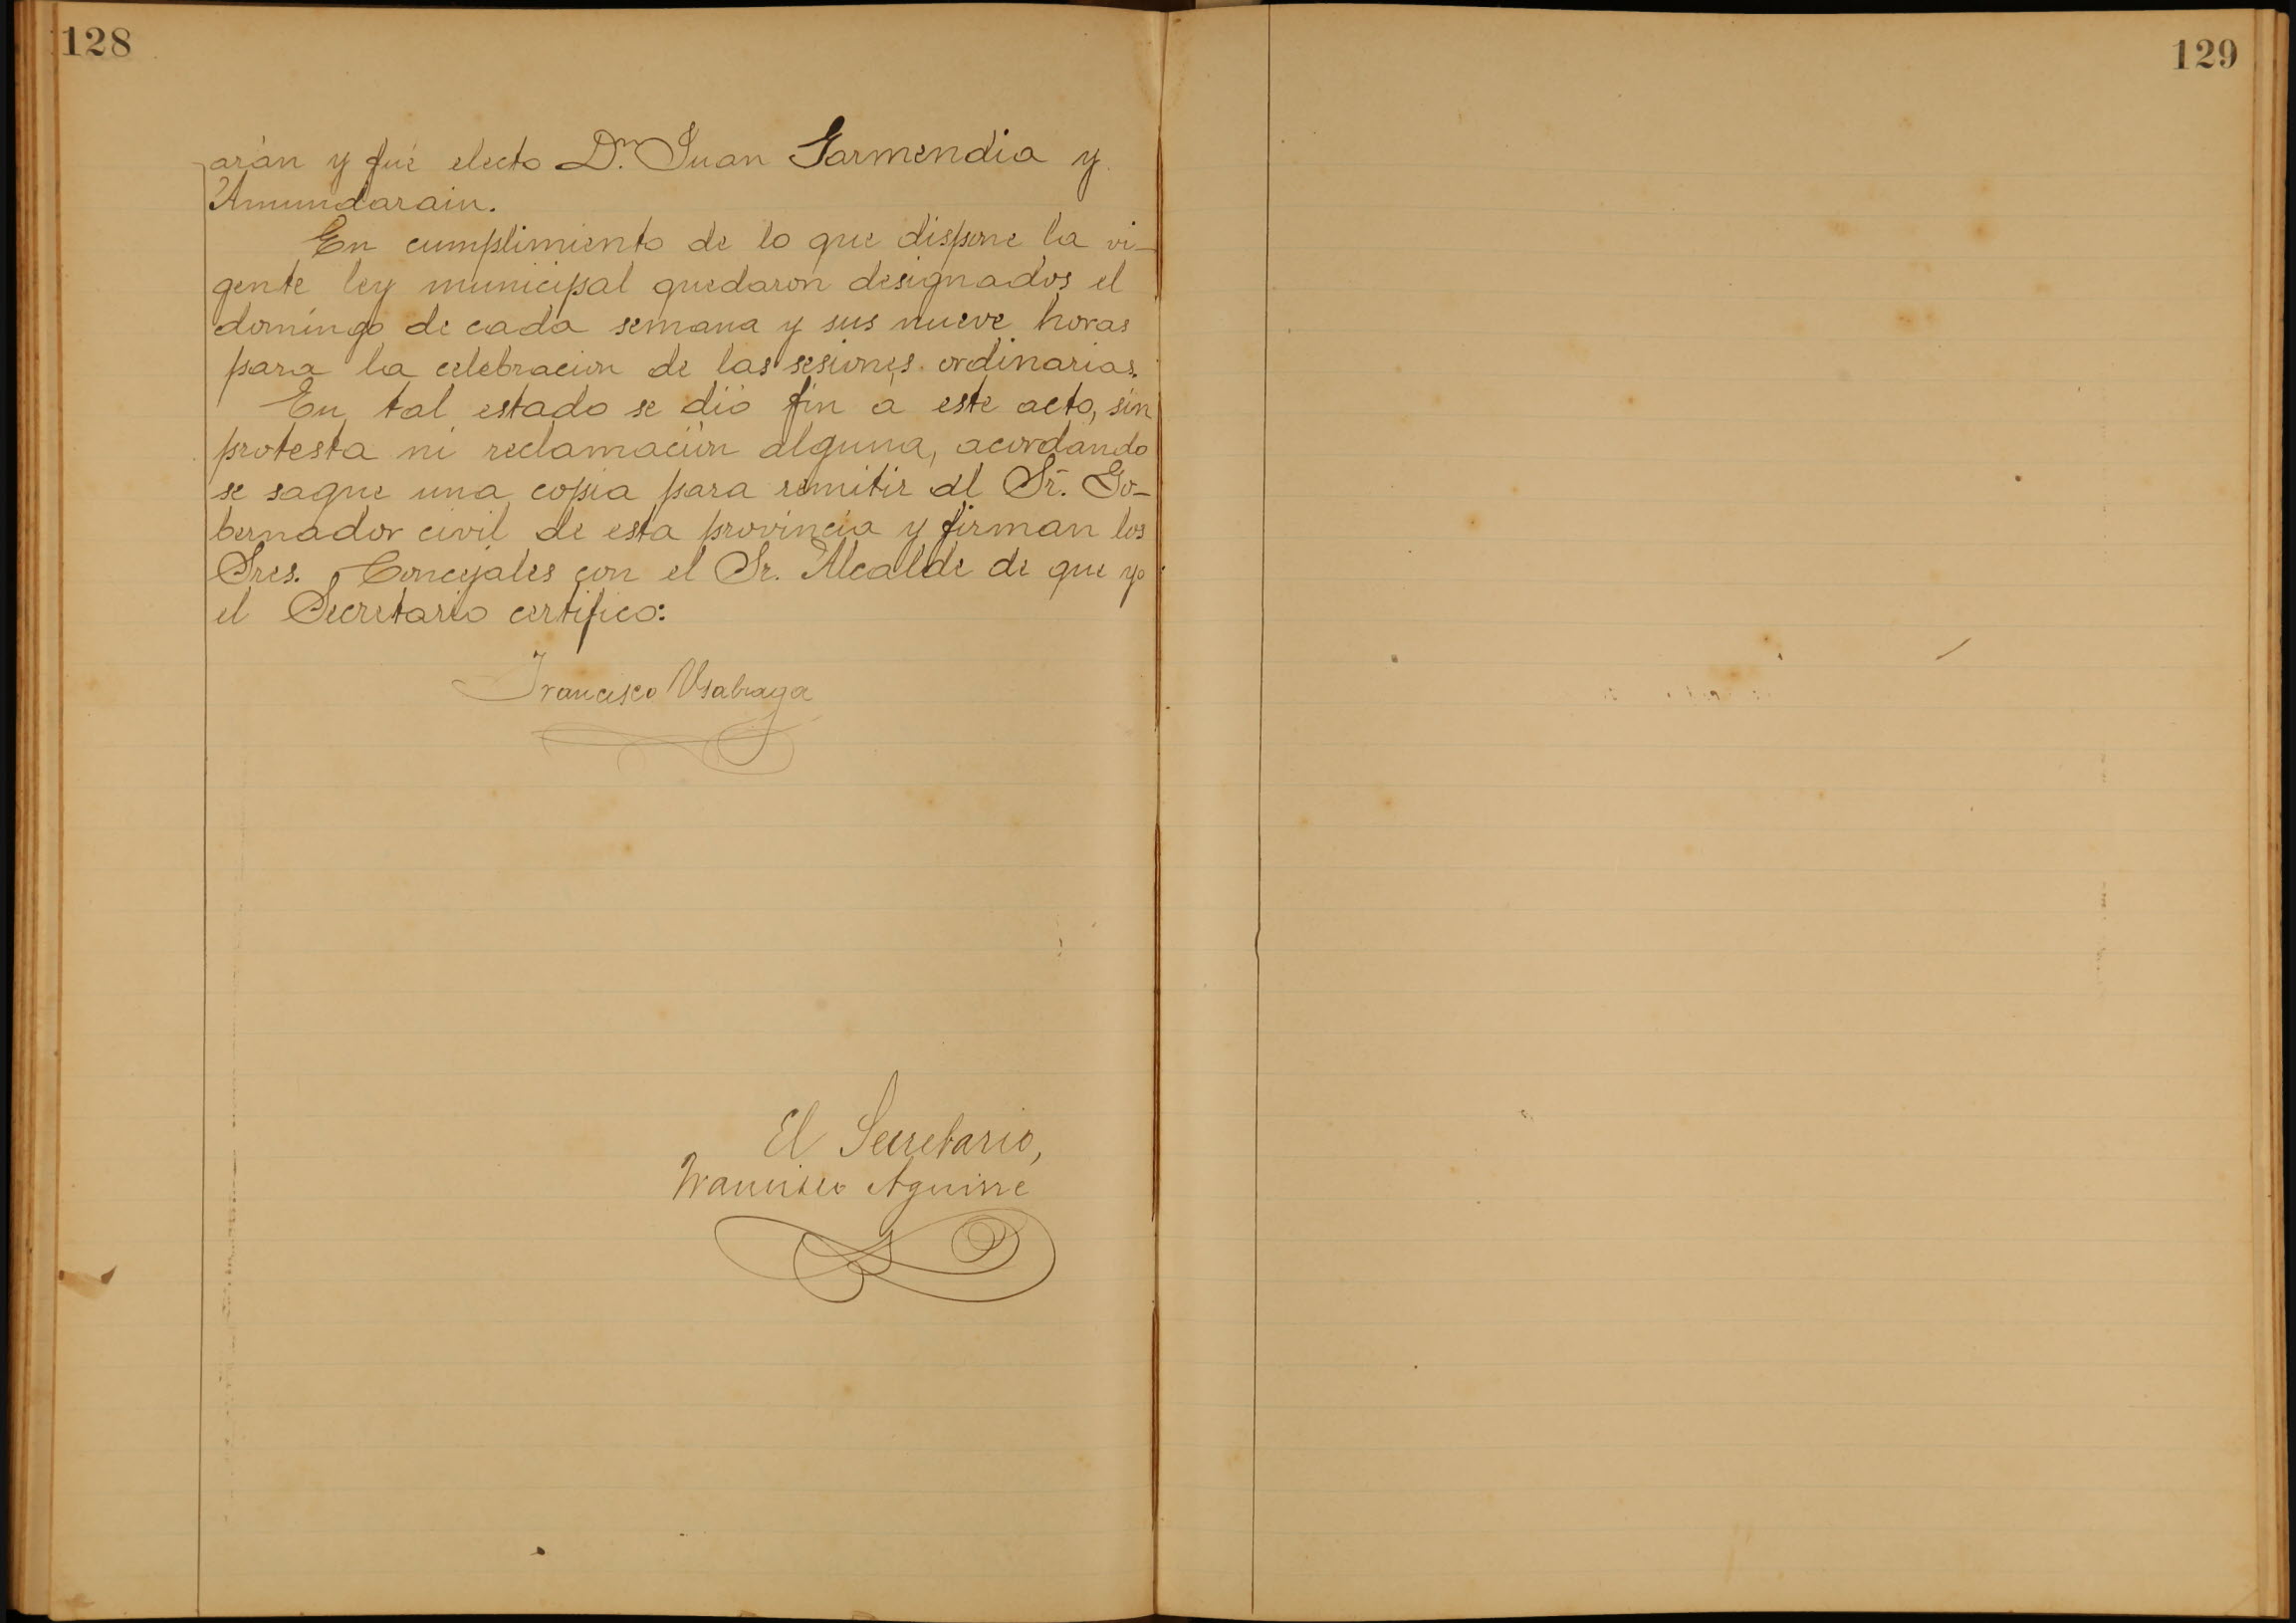 128
arán y fué electo Dn. Juan Garmendia y
Amundarain.
En cumplimiento de lo que dispone la vi-
gente ley municipal quedaron designados el
domingo de cada semana y sus nueve horas
para la celebracion de las sesiones ordinarias.
En tal estado se dió fin á este acto, sin
protesta ni reclamación alguna, acordando
se saque una copia para remitir al Sr. Go-
bernador civil de esta provincia y firman los
Sres. Concejales con el Sr. Alcalde de que yo
el Secretario certifico:
Francisco Usabiaga
El Secretario,
Francisco Aguirre
129